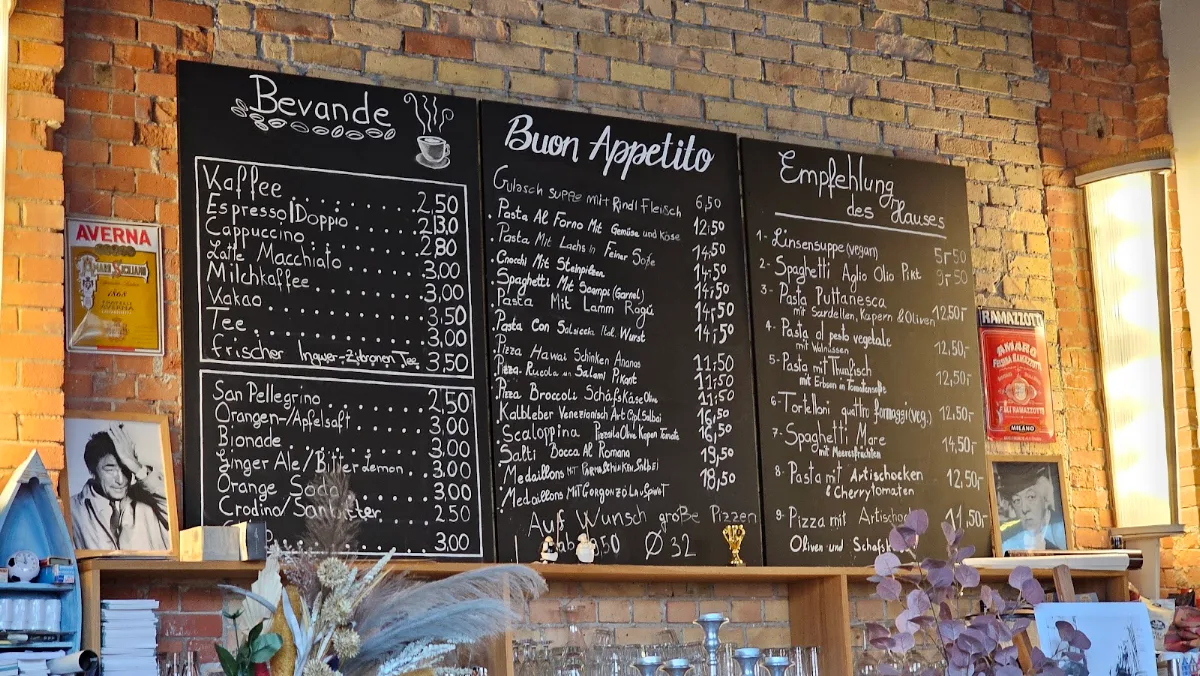 AVERNA
AMARO SICILIANO
1868
Bevande
Kaffee 2,50
Espresso|Doppio
Cappuccino 2,80
Latte Macchiato 3,00
Milchkaffee 3,00
Kakao 3,50
Tee 3,00
frischer Ingwer-Zitronen Tee 3,50
San Pellegrino 2,50
Orangen-/Apfelsaft 3,00
Bionade 3,00
Ginger Ale/Bitter Lemon 3,00
Orange Soda 3,00
Crodino/ 2,50
3,00
Buon Appetito
Gulasch suppe mit Rindl Fleisch 6,50
Pasta Al Forno Mit Gemüse und Käse 12,50
Pasta Mit Lachs in Feiner Soße 14,50
Gnocchi Mit Steinpilzen 14,50
Spaghetti Mit Scampi (Garnel) 14,50
Pasta Mit Lamm Ragú 14,50
Pasta Con Salsiccia Ital. Wurst 14,50
Pizza Hawai Schinken Ananas 11,50
Pizza Rucola Salami Pikant 11,50
Pizza Broccoli Schafskäse Olive 11,50
Kalbleber Venezianisch Art Cipl. Salbei 16,50
Scaloppina Pizzaiola Olive Kapern Tomate 16,50
Salti Bocca Al Romana 19,50
Medaillons Mit Parmaschinken Salbei 18,50
Medaillons Mit Gorgonzola u Spinat
Auf Wunsch große Pizzen
Ø 32
Empfehlung
des Hauses
1- Linsensuppe (vegan) 5,50
2- Spaghetti Aglio Olio Pikt 9,50
3- Pasta Puttanesca
mit Sardellen, Kapern & Oliven 12,50,-
4- Pasta al pesto vegetale
mit Walnüssen 12,50,-
5- Pasta mit Thunfisch
mit Erbsen in Tomatensoße 12,50,-
6- Tortelloni quattro formaggi (veg.) 12,50,-
7- Spaghetti Mare
mit Meeresfrüchten 14,50,-
8- Pasta mit Artischocken 12,50,-
& Cherrytomaten
9- Pizza mit 11,50,-
Oliven und
RAMAZZOTTI
AMARO
FELSINA RAMAZZOTTI
F.LLI RAMAZZOTTI
MILANO